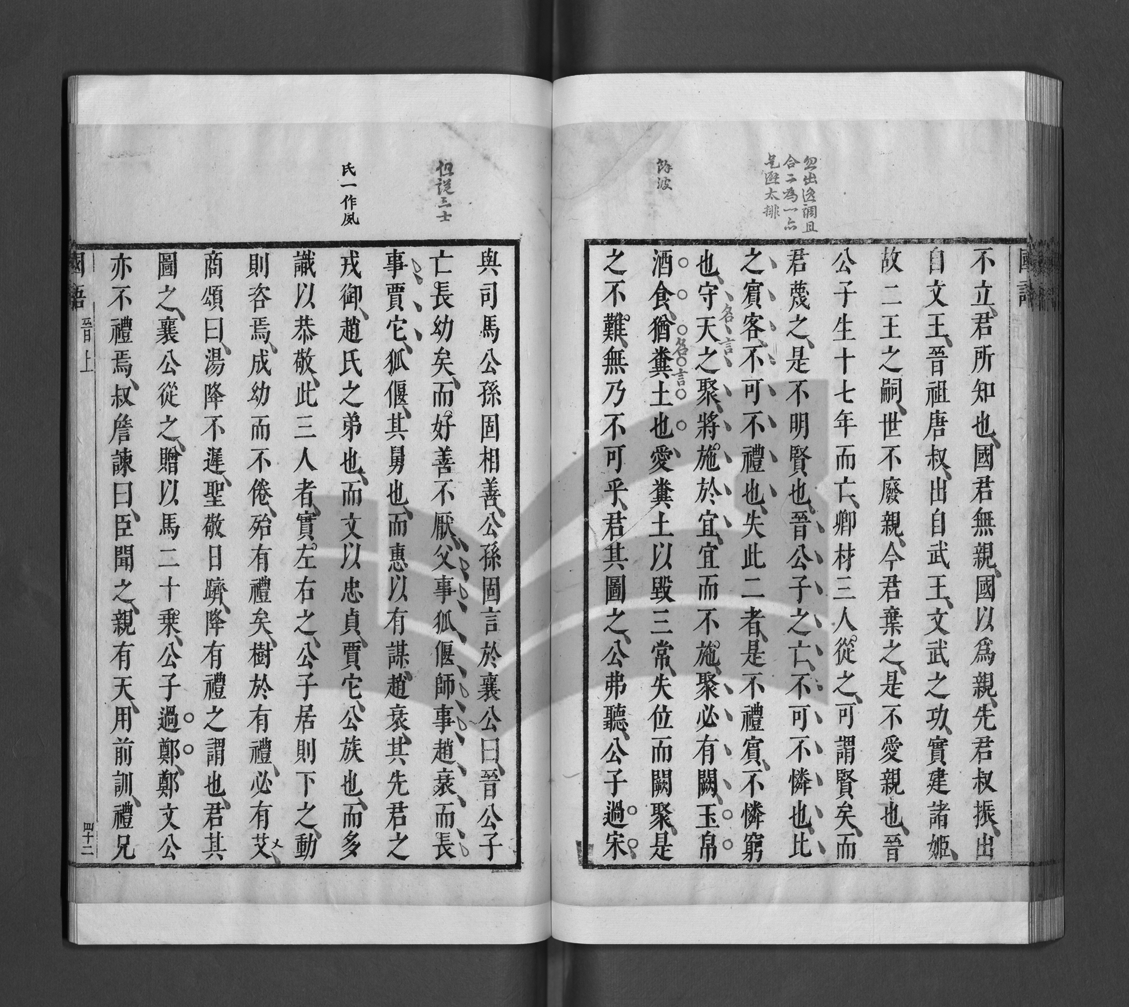 忽出逸調且
合二為一六
餘波
國語
不立君所知也國君無親國以爲親先君叔振出
自文王晉祖唐叔出自武王文武之功實建諸姬
故二王之嗣世不廢親今君棄之是不愛親也晉
公子生十七年而亡卿材三人從之可謂賢矣而
君蔑之是不明賢也晉公子之亡不可不憐也比
之賓客不可不禮也失此二者是不禮賓不憐窮
名言
也守天之聚將施於宜宜而不施聚必有闕玉帛
名言
酒食猶糞土也愛糞土以毀三常失位而闕聚是
之不難無乃不可乎君其圖之公弗聽公子過宋
但從三士
氏一作夙
與司馬公孫固相善公孫固言於襄公曰晉公子
亡長幼矣而好善不厭父事狐偃師事趙衰而長
事賈它狐偃其舅也而惠以有謀趙衰其先君之
戎御趙氏之弟也而文以忠貞賈它公族也而多
識以恭敬此三人者實左右之公子居則下之動
則咨焉成幼而不倦殆有禮矣樹於有禮必有艾
商頌曰湯降不遲聖敬日躋降有禮之謂也君其
圖之襄公從之贈以馬二十乘公子過鄭鄭文公
亦不禮焉叔詹諫曰臣聞之親有天用前訓禮兄
國語 晉上 四十二